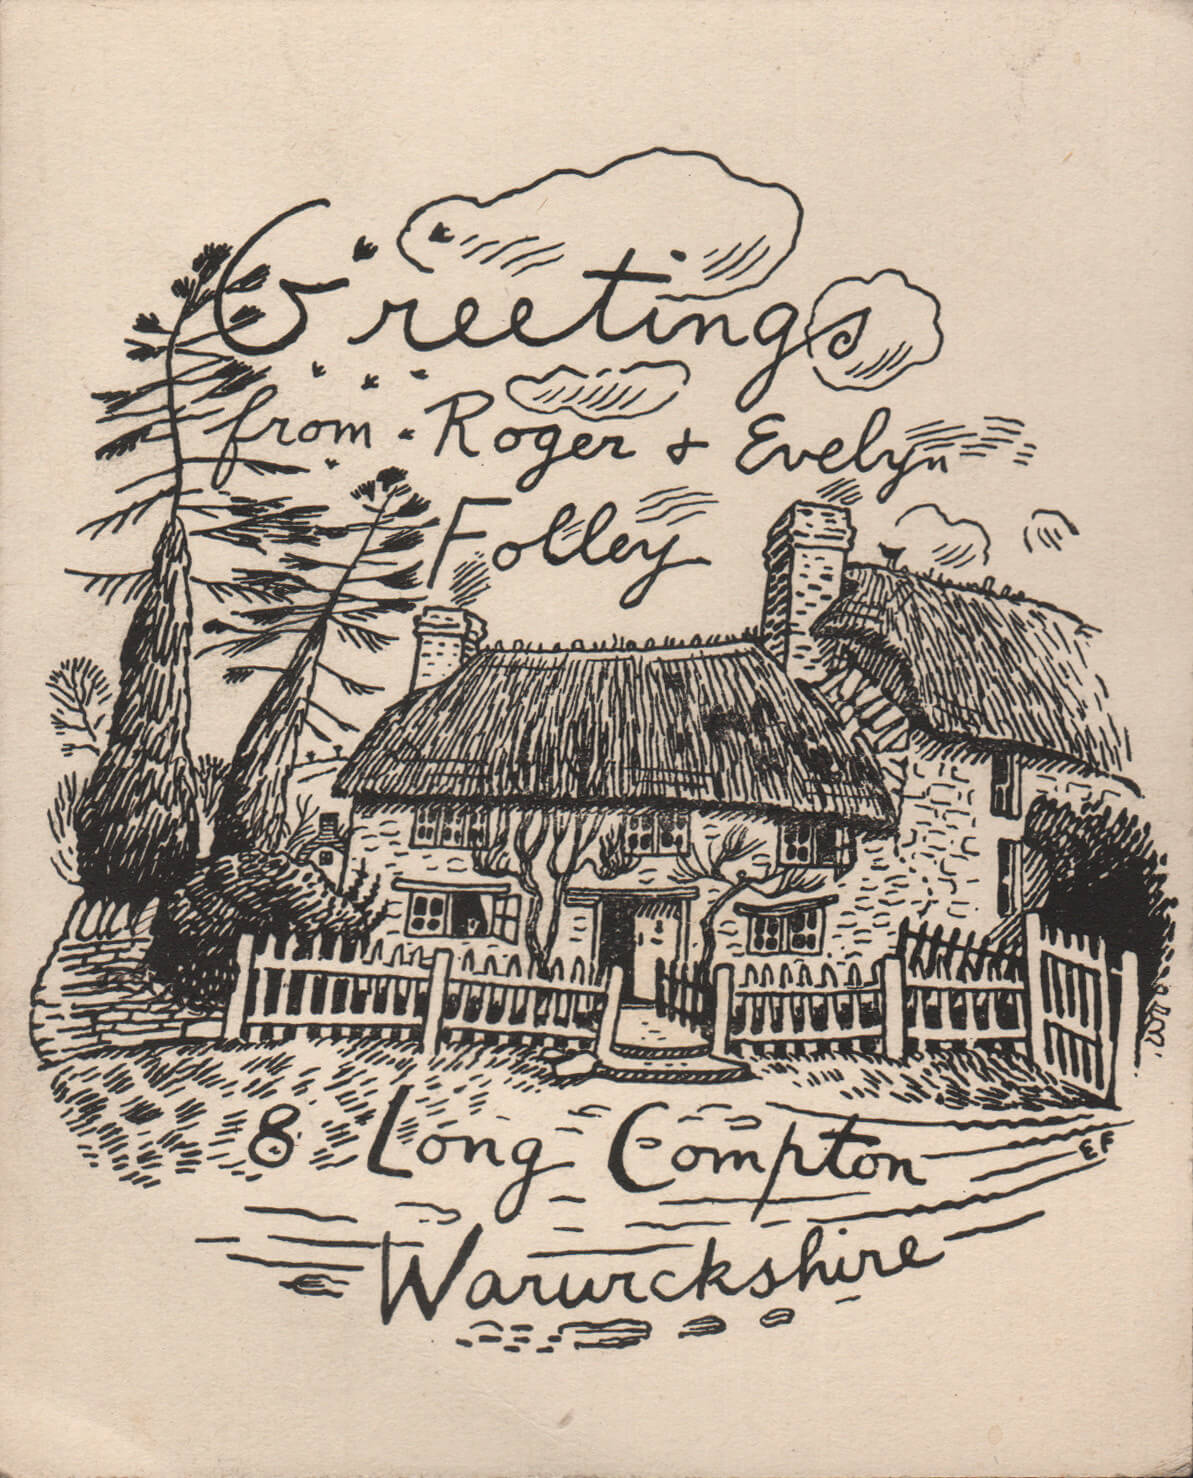 Greetings
from Roger & Evelyn
Folley
8 Long Compton
EF
Warwickshire